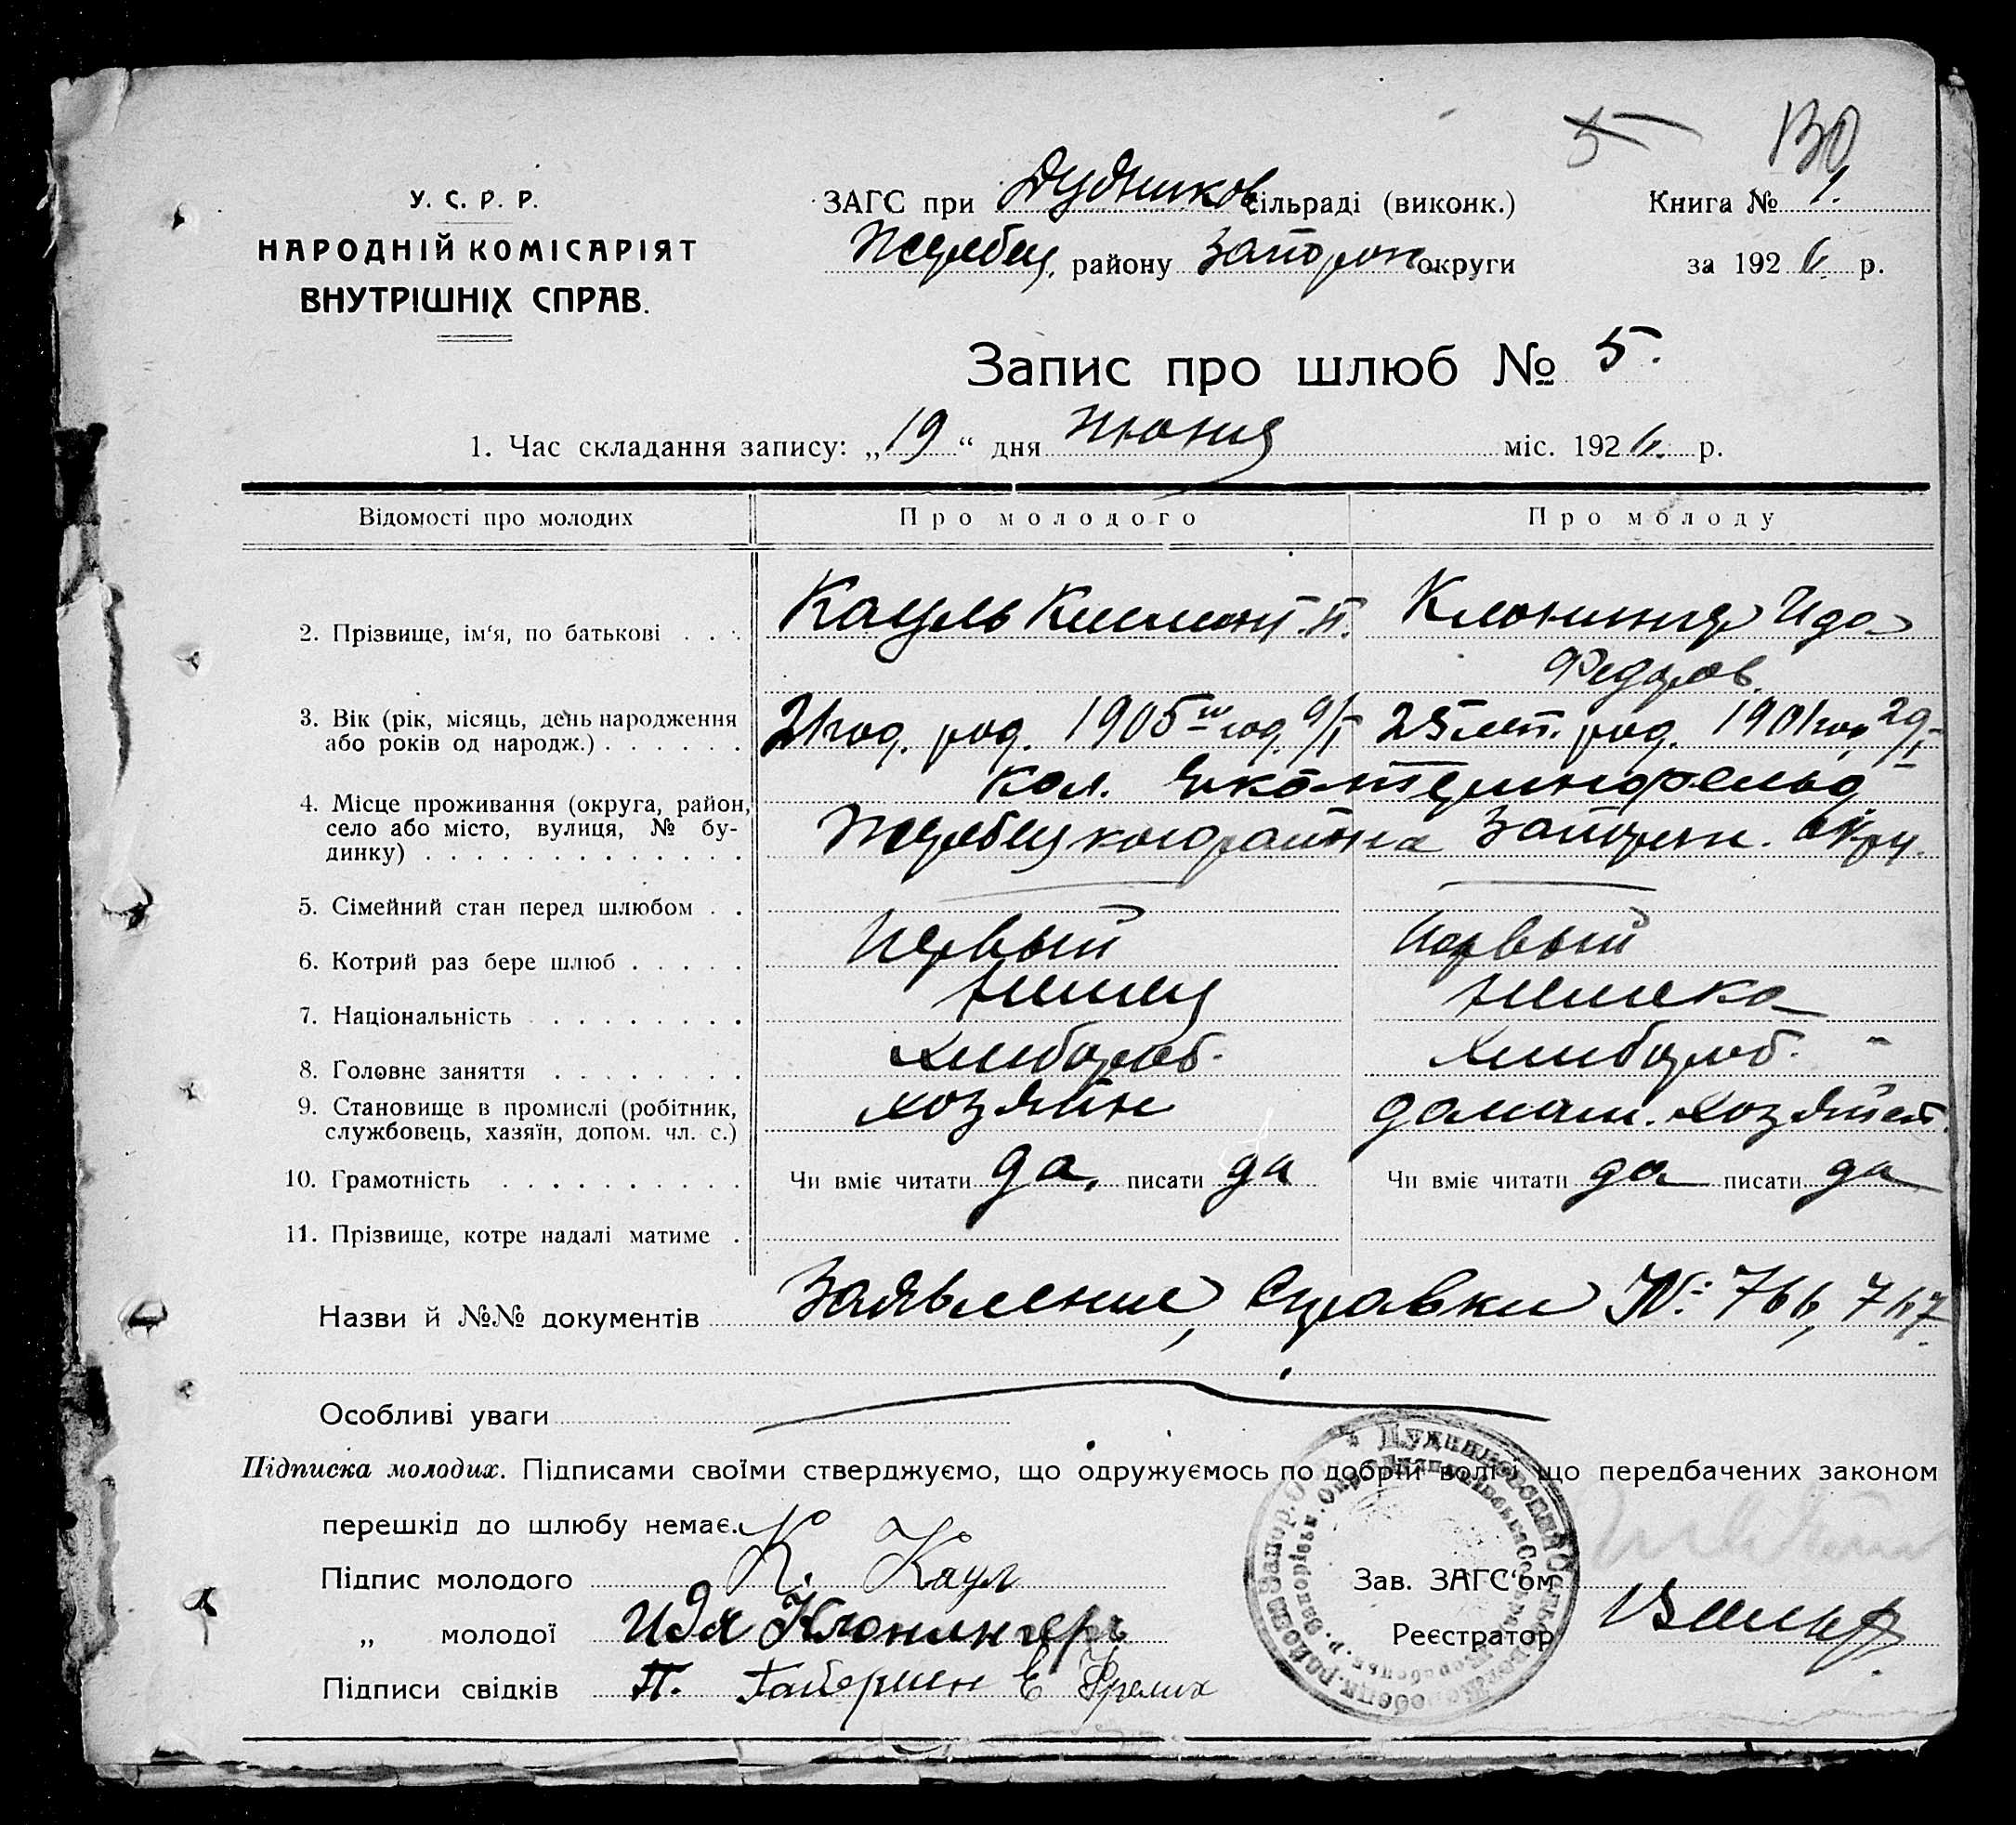 5 130
У. С. Р. Р.
НАРОДНІЙ КОМІСАРІЯТ
ВНУТРІШНІХ СПРАВ.
ЗАГС при Дудников сільраді (виконк.) Книга № 1.
Жеребец. району Запорож округи за 1926 р.
Запис про шлюб № 5.
1. Час складання запису: „19“ дня Июня міс. 1926 р.
Відомості про молодих Про молодого Про молоду
2. Прізвище, ім‘я, по батькові . . . Кауль Климент. П. Клонингер Ида
Федоров.
3. Вік (рік, місяць, день народження
або років од народж.) . . . . . . 21 год. род. 1905 год. 9/I 25 лет. род. 1901 год 29/I
4. Місце проживання (округа, район,
село або місто, вулиця, № бу-
динку) . . . . . . . . . . . . . кол. Екатеринфельд
Жеребецкого района Запорож. окру.
5. Сімейний стан перед шлюбом . .
6. Котрий раз бере шлюб . . . . . Первый Первый
7. Національність . . . . . . . . . Немец Немка
8. Головне заняття . . . . . . . . Хлибороб. Хлибороб.
9. Становище в промислі (робітник,
службовець, хазяїн, допом. чл. с.) хозяин домаш. хозяйст.
10. Грамотність . . . . . . . . . . Чи вміє читати да, писати да Чи вміє читати да писати да
11. Прізвище, котре надалі матиме .
Назви й №№ документів Заявление, Справки №: 766, 767
Особливі уваги
Підписка молодих. Підписами своїми стверджуємо, що одружуємось по добрій волі і що передбачених законом
перешкід до шлюбу немає.
Підпис молодого К. Каул Зав. ЗАГС‘ом
„ молодої Ида Клонингеръ Реєстратор
Підписи свідків П. Е